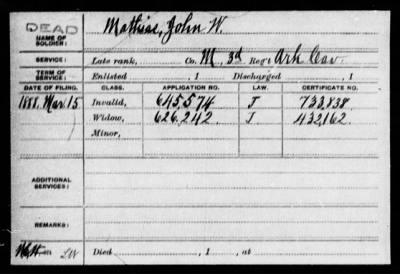 DEAD
NAME OF SOLDIER: Mathias, John W.
SERVICE: Late rank, Co. M, 3d Reg't Ark Cav.
TERM OF SERVICE: Enlisted , 1 Discharged , 1
DATE OF FILING. CLASS. APPLICATION NO. LAW. CERTIFICATE NO.
1888, Mar. 15 Invalid, 645,574 J 733,838
Widow, 626,242 J 432,162
Minor,
ADDITIONAL SERVICES:
REMARKS:
Died , 1 , at